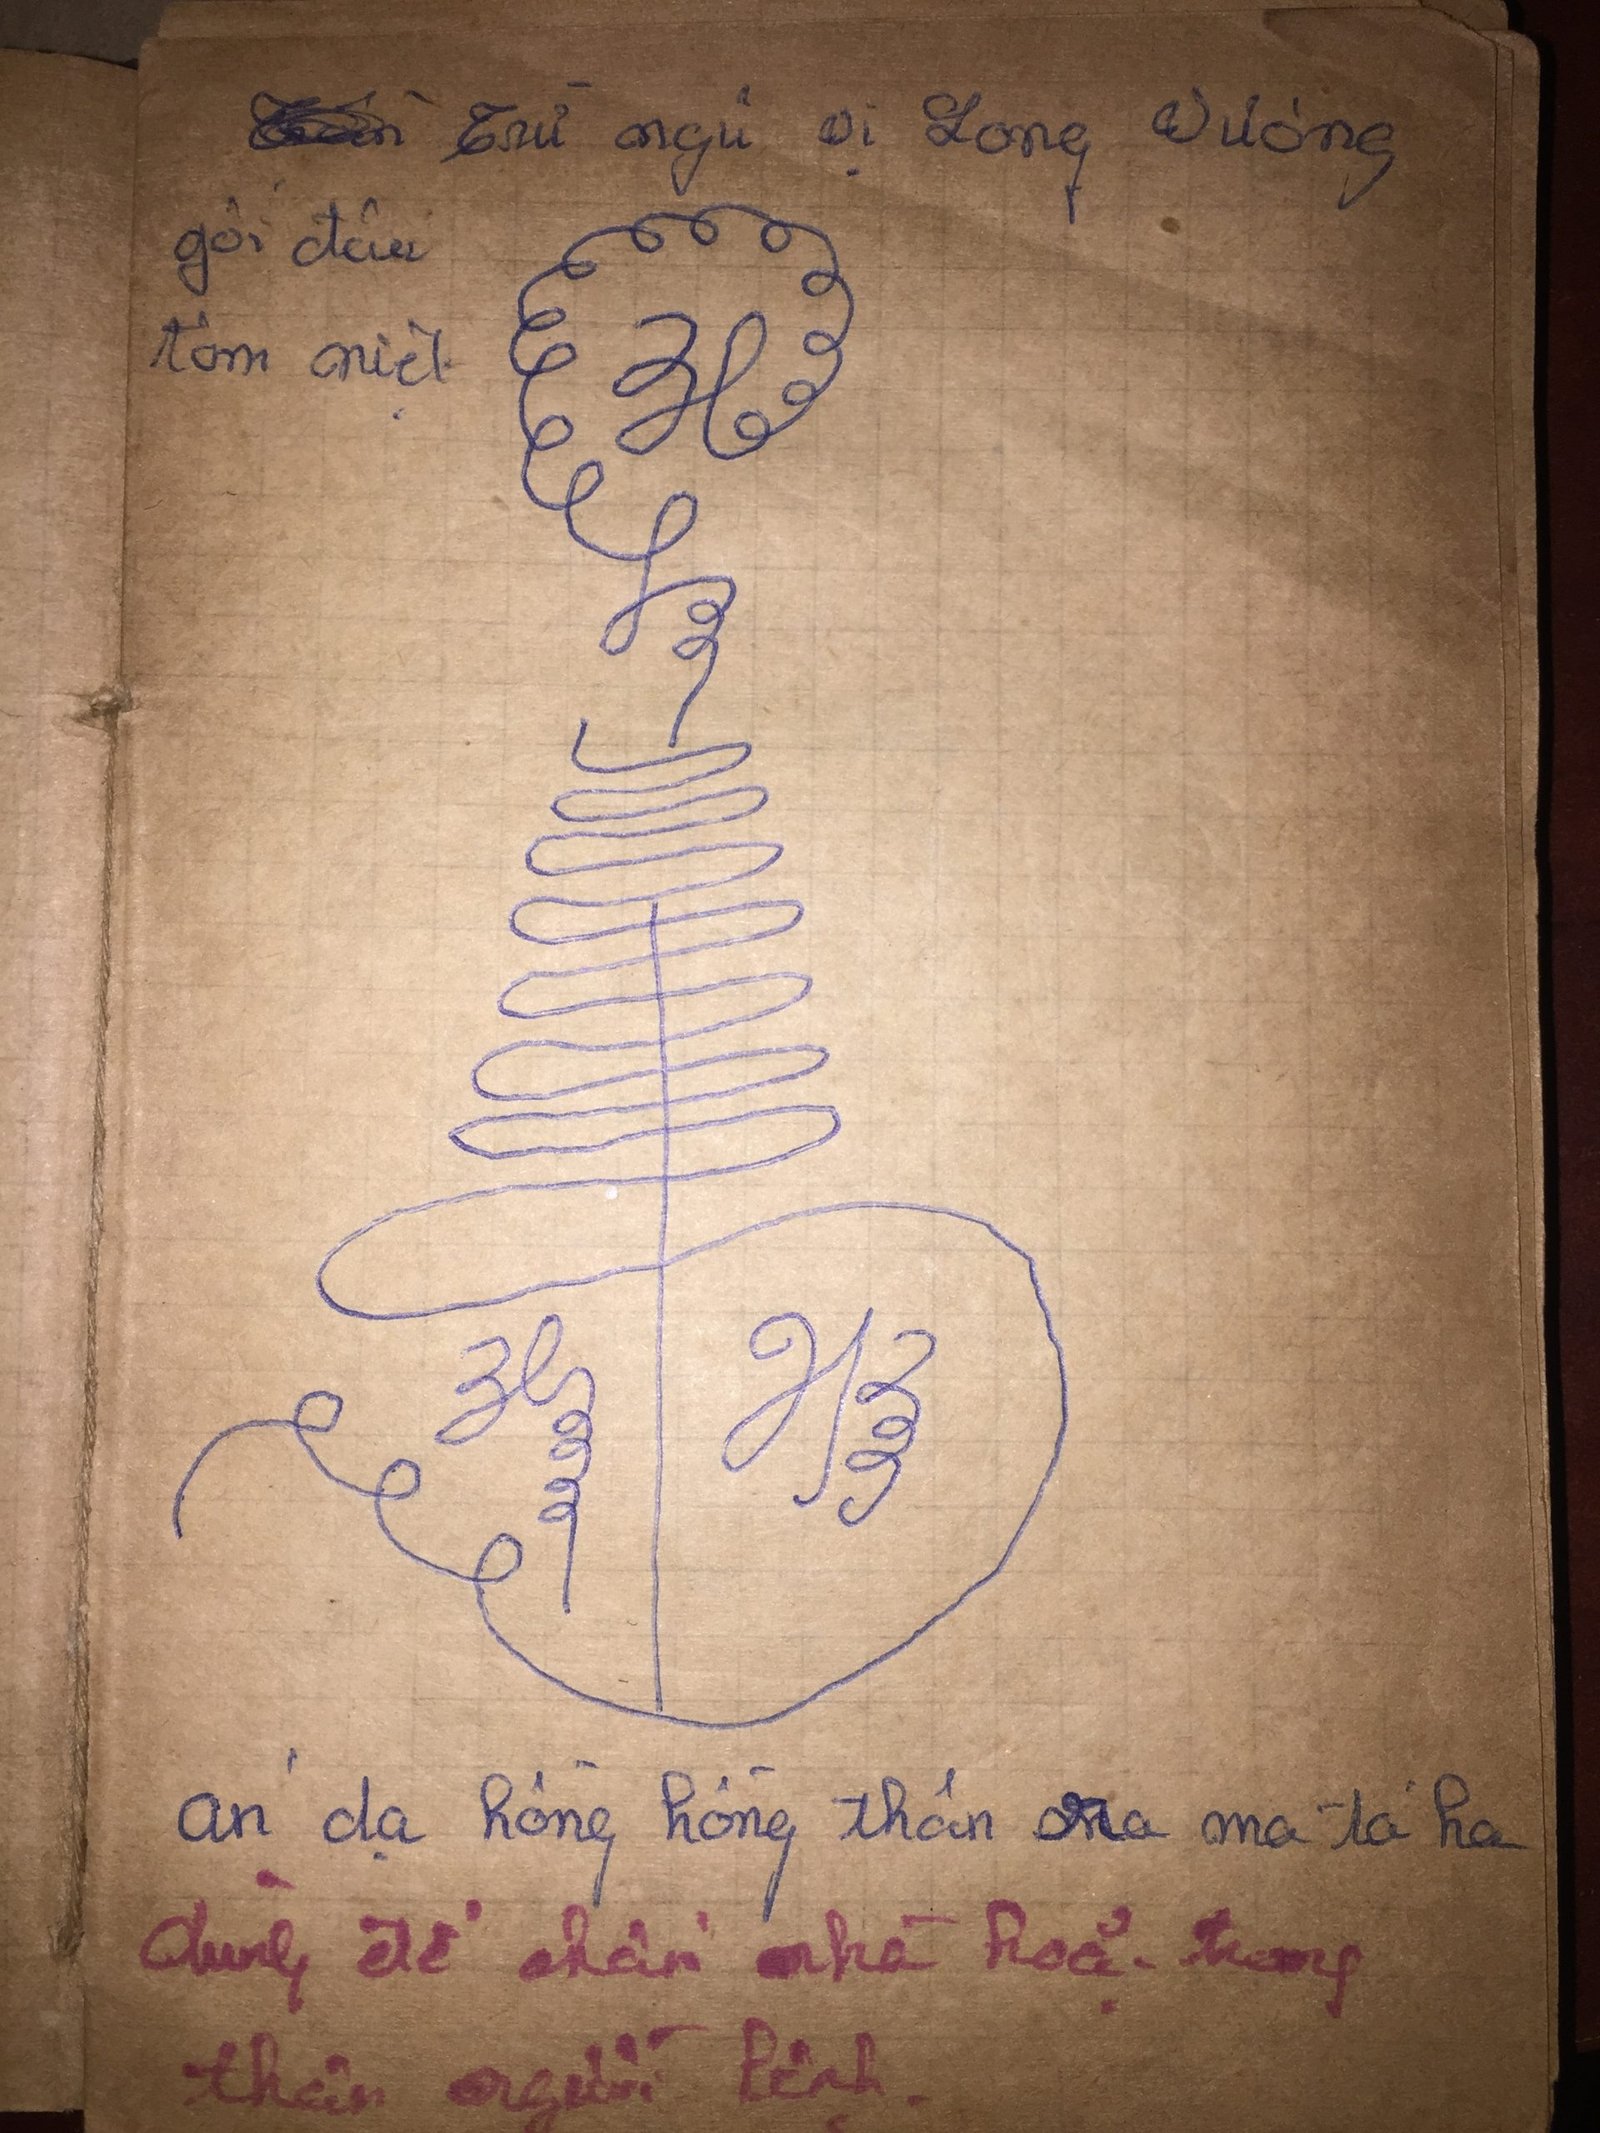 Trừ ngũ vị Long Vương
gối đầu
tôm niệt
án dạ hồng hồng thân ma ta ha
dùng để nhà hoả trong
thân người bệnh.